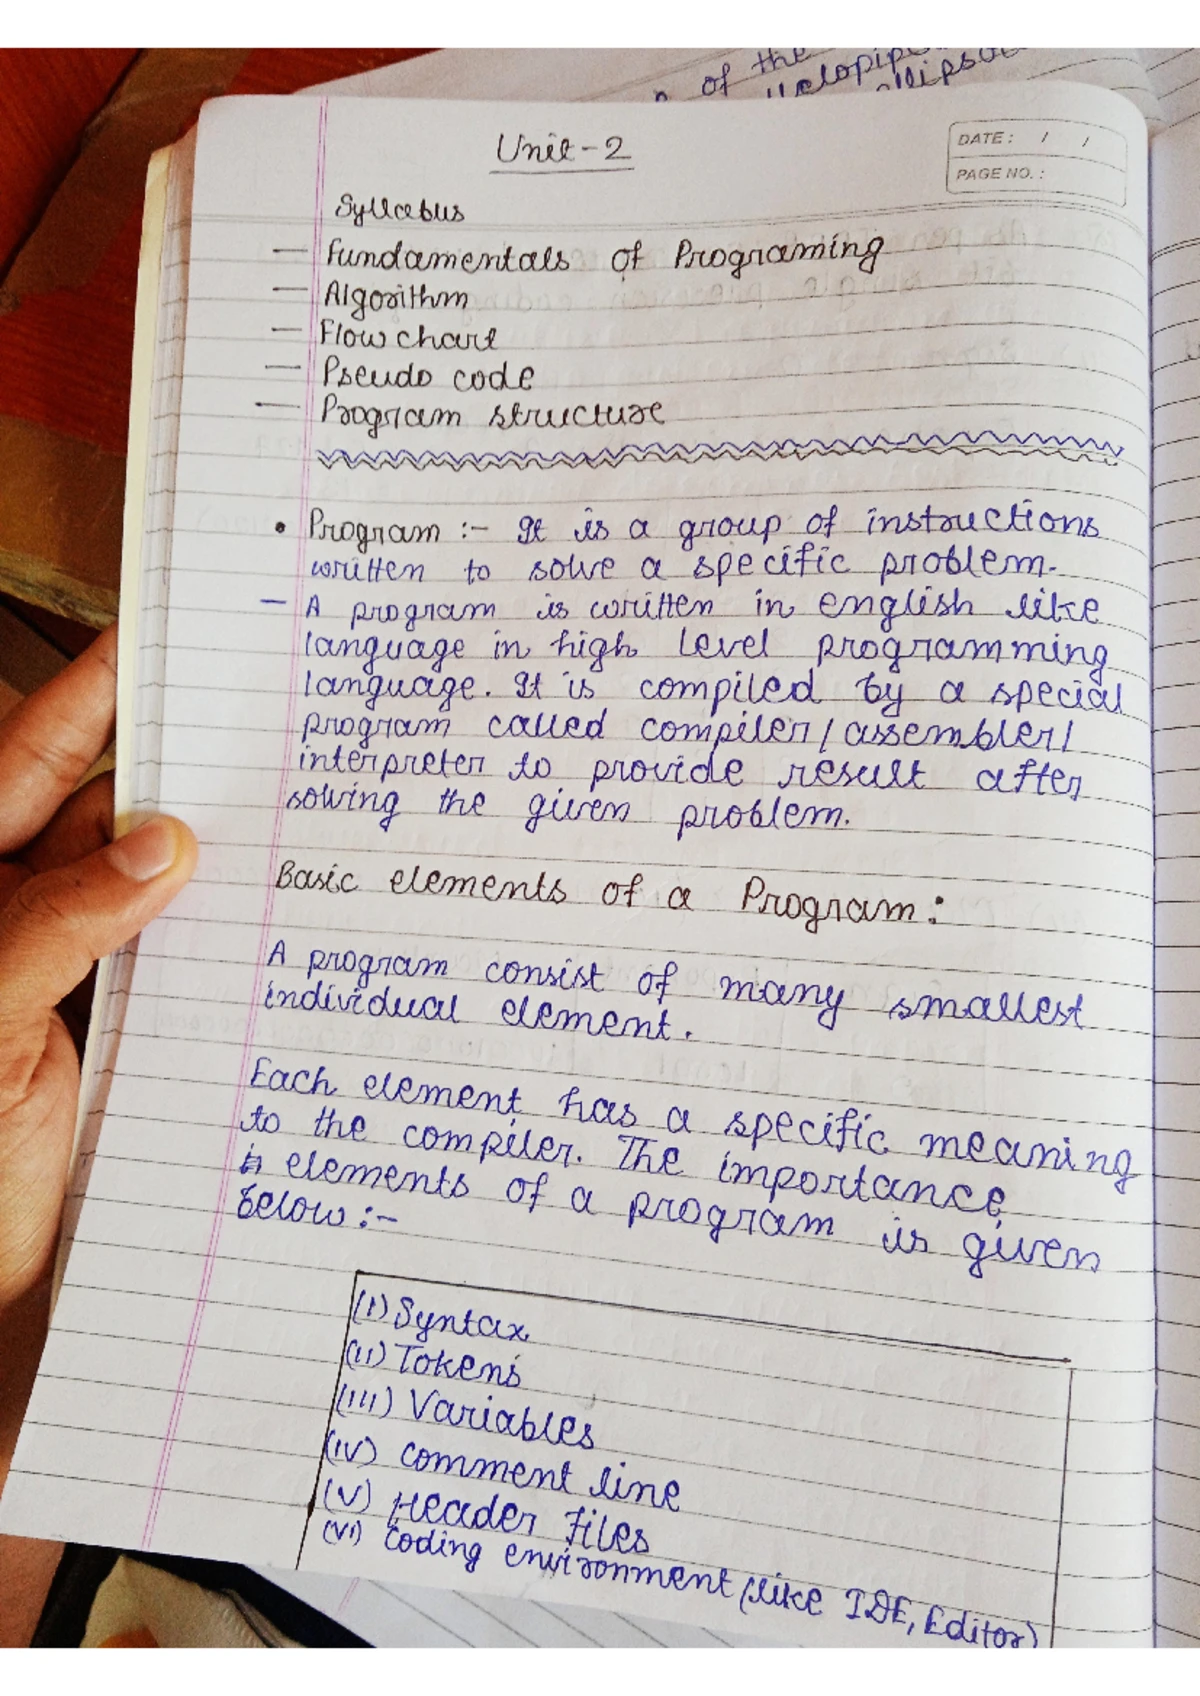 of the
Unit-2
DATE: / /
PAGE NO.:
Syllabus
— Fundamentals of Programing
— Algorithm
— Flow chart
— Pseudo code
— Program structure
• Program :- It is a group of instructions
written to solve a specific problem.
— A program is written in english like
language in high level programming
language. It is compiled by a special
program called compiler/assembler/
interpreter to provide result after
solving the given problem.
Basic elements of a Program:
A program consist of many smallest
individual element.
Each element has a specific meaning
to the compiler. The importance
elements of a program is given
below:-
(I) Syntax
(II) Tokens
(III) Variables
(IV) Comment line
(V) Header files
(VI) Coding environment (like IDE, Editor)